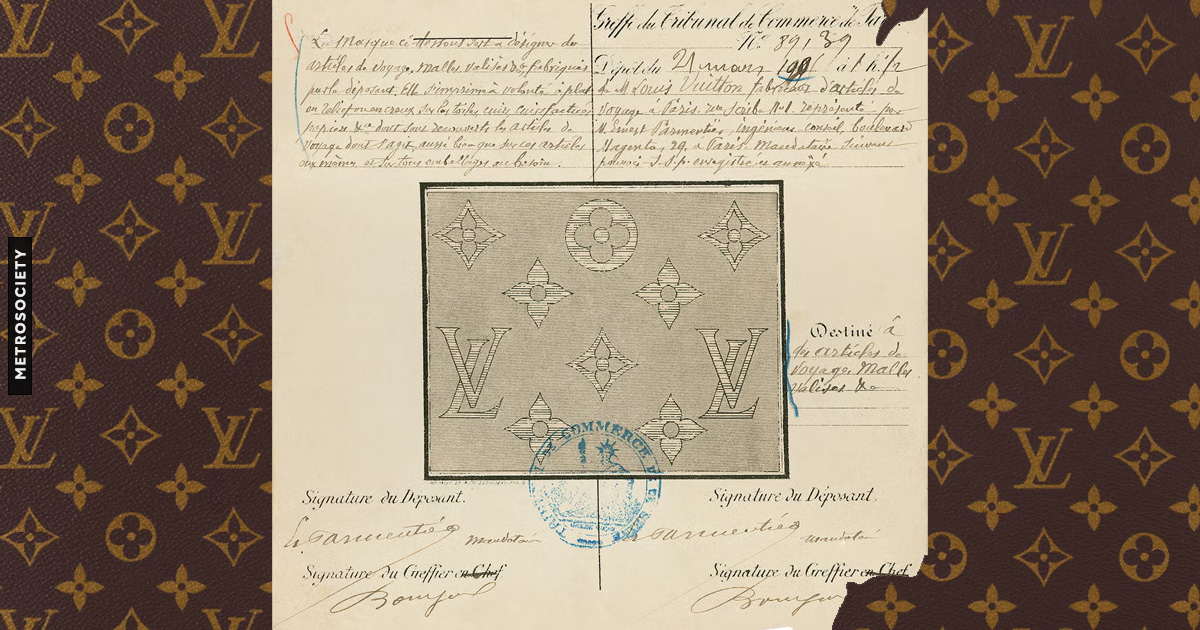 METROSOCIETY
La Marque ci-dessous sert a désigner des
articles de voyage, malles valises &a fabriqués
par le déposant. Elle s'imprime à volonté à plat
en relief ou en creux sur les toiles, cuirs, cuirs factices
papiers &a dont sont recouverts les articles de
voyage dont s'agit, aussi bien que sur ces articles
eux mêmes et sur tous emballages au besoin.
Greffe du Tribunal de Commerce de
No 89,39
Dépôt du mars à
de M Louis Vuitton fabricant d'articles de
voyage à Paris rue Scribe No 1. représenté par
M. Ernest Parmentier, ingénieur conseil, boulevard
Magenta, 29, a Paris. Mandataire suivant
pouvoir s.s.p. enregistré et annexé
LV
LV
Destiné à
des articles de
voyage, Malles
valises &a
COMMERCE DE LA SEINE
Signature du Déposant.
Signature du Déposant.
E. Parmentier mandataire
E. Parmentier mandataire
Signature du Greffier en Chef
Signature du Greffier en Chef